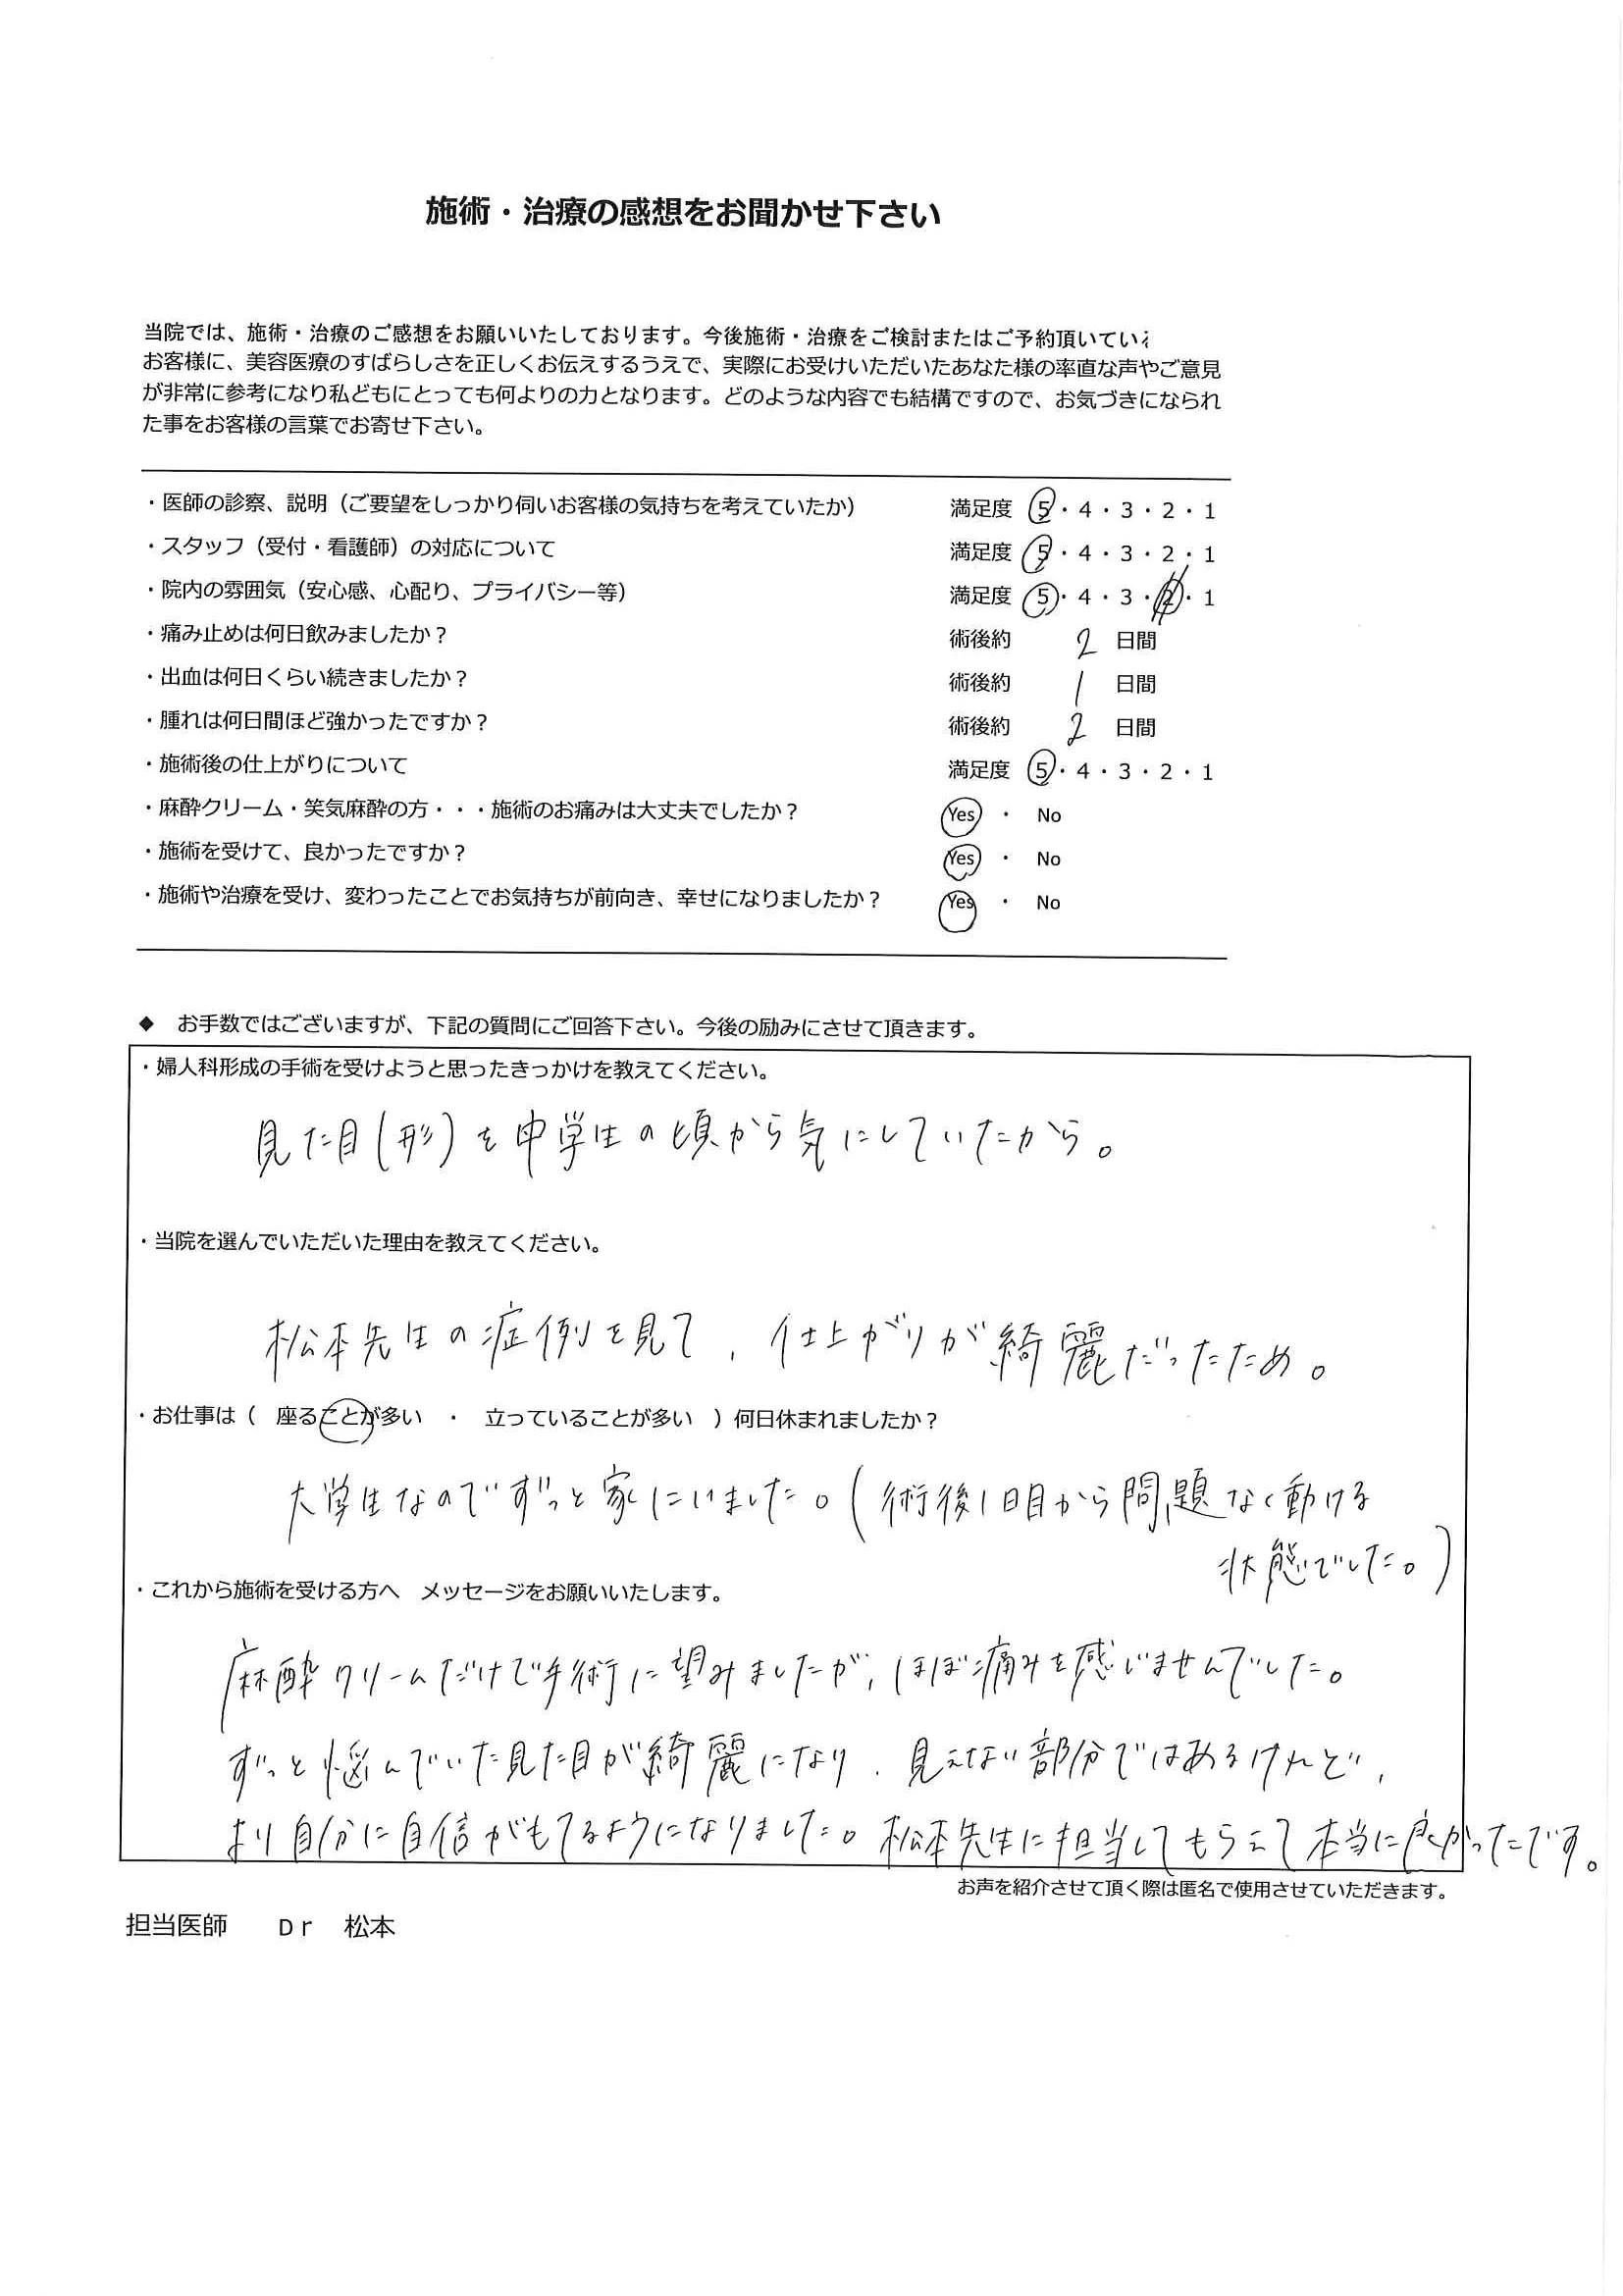 施術・治療の感想をお聞かせ下さい
当院では、施術・治療のご感想をお願いいたしております。今後施術・治療をご検討またはご予約頂いている
お客様に、美容医療のすばらしさを正しくお伝えするうえで、実際にお受けいただいたあなた様の率直な声やご意見
が非常に参考になり私どもにとっても何よりの力となります。どのような内容でも結構ですので、お気づきになられ
た事をお客様の言葉でお寄せ下さい。
・医師の診察、説明（ご要望をしっかり伺いお客様の気持ちを考えていたか） 満足度 5・4・3・2・1
・スタッフ（受付・看護師）の対応について 満足度 5・4・3・2・1
・院内の雰囲気（安心感、心配り、プライバシー等） 満足度 5・4・3・2・1
・痛み止めは何日飲みましたか？ 術後約 2 日間
・出血は何日くらい続きましたか？ 術後約 1 日間
・腫れは何日間ほど強かったですか？ 術後約 2 日間
・施術後の仕上がりについて 満足度 5・4・3・2・1
・麻酔クリーム・笑気麻酔の方・・・施術のお痛みは大丈夫でしたか？ Yes ・ No
・施術を受けて、良かったですか？ Yes ・ No
・施術や治療を受け、変わったことでお気持ちが前向き、幸せになりましたか？ Yes ・ No
◆ お手数ではございますが、下記の質問にご回答下さい。今後の励みにさせて頂きます。
・婦人科形成の手術を受けようと思ったきっかけを教えてください。
見た目(形)を中学生の頃から気にしていたから。
・当院を選んでいただいた理由を教えてください。
松本先生の症例を見て、仕上がりが綺麗だったため。
・お仕事は（ 座ることが多い ・ 立っていることが多い ）何日休まれましたか？
大学生なのでずっと家にいました。(術後1日目から問題なく動ける
状態でした。)
・これから施術を受ける方へ メッセージをお願いいたします。
麻酔クリームだけで手術に望みましたが、ほぼ痛みを感じませんでした。
ずっと悩んでいた見た目が綺麗になり、見えない部分ではあるけれど、
より自分に自信がもてるようになりました。松本先生に担当してもらえて本当に良かったです。
お声を紹介させて頂く際は匿名で使用させていただきます。
担当医師 Dr 松本